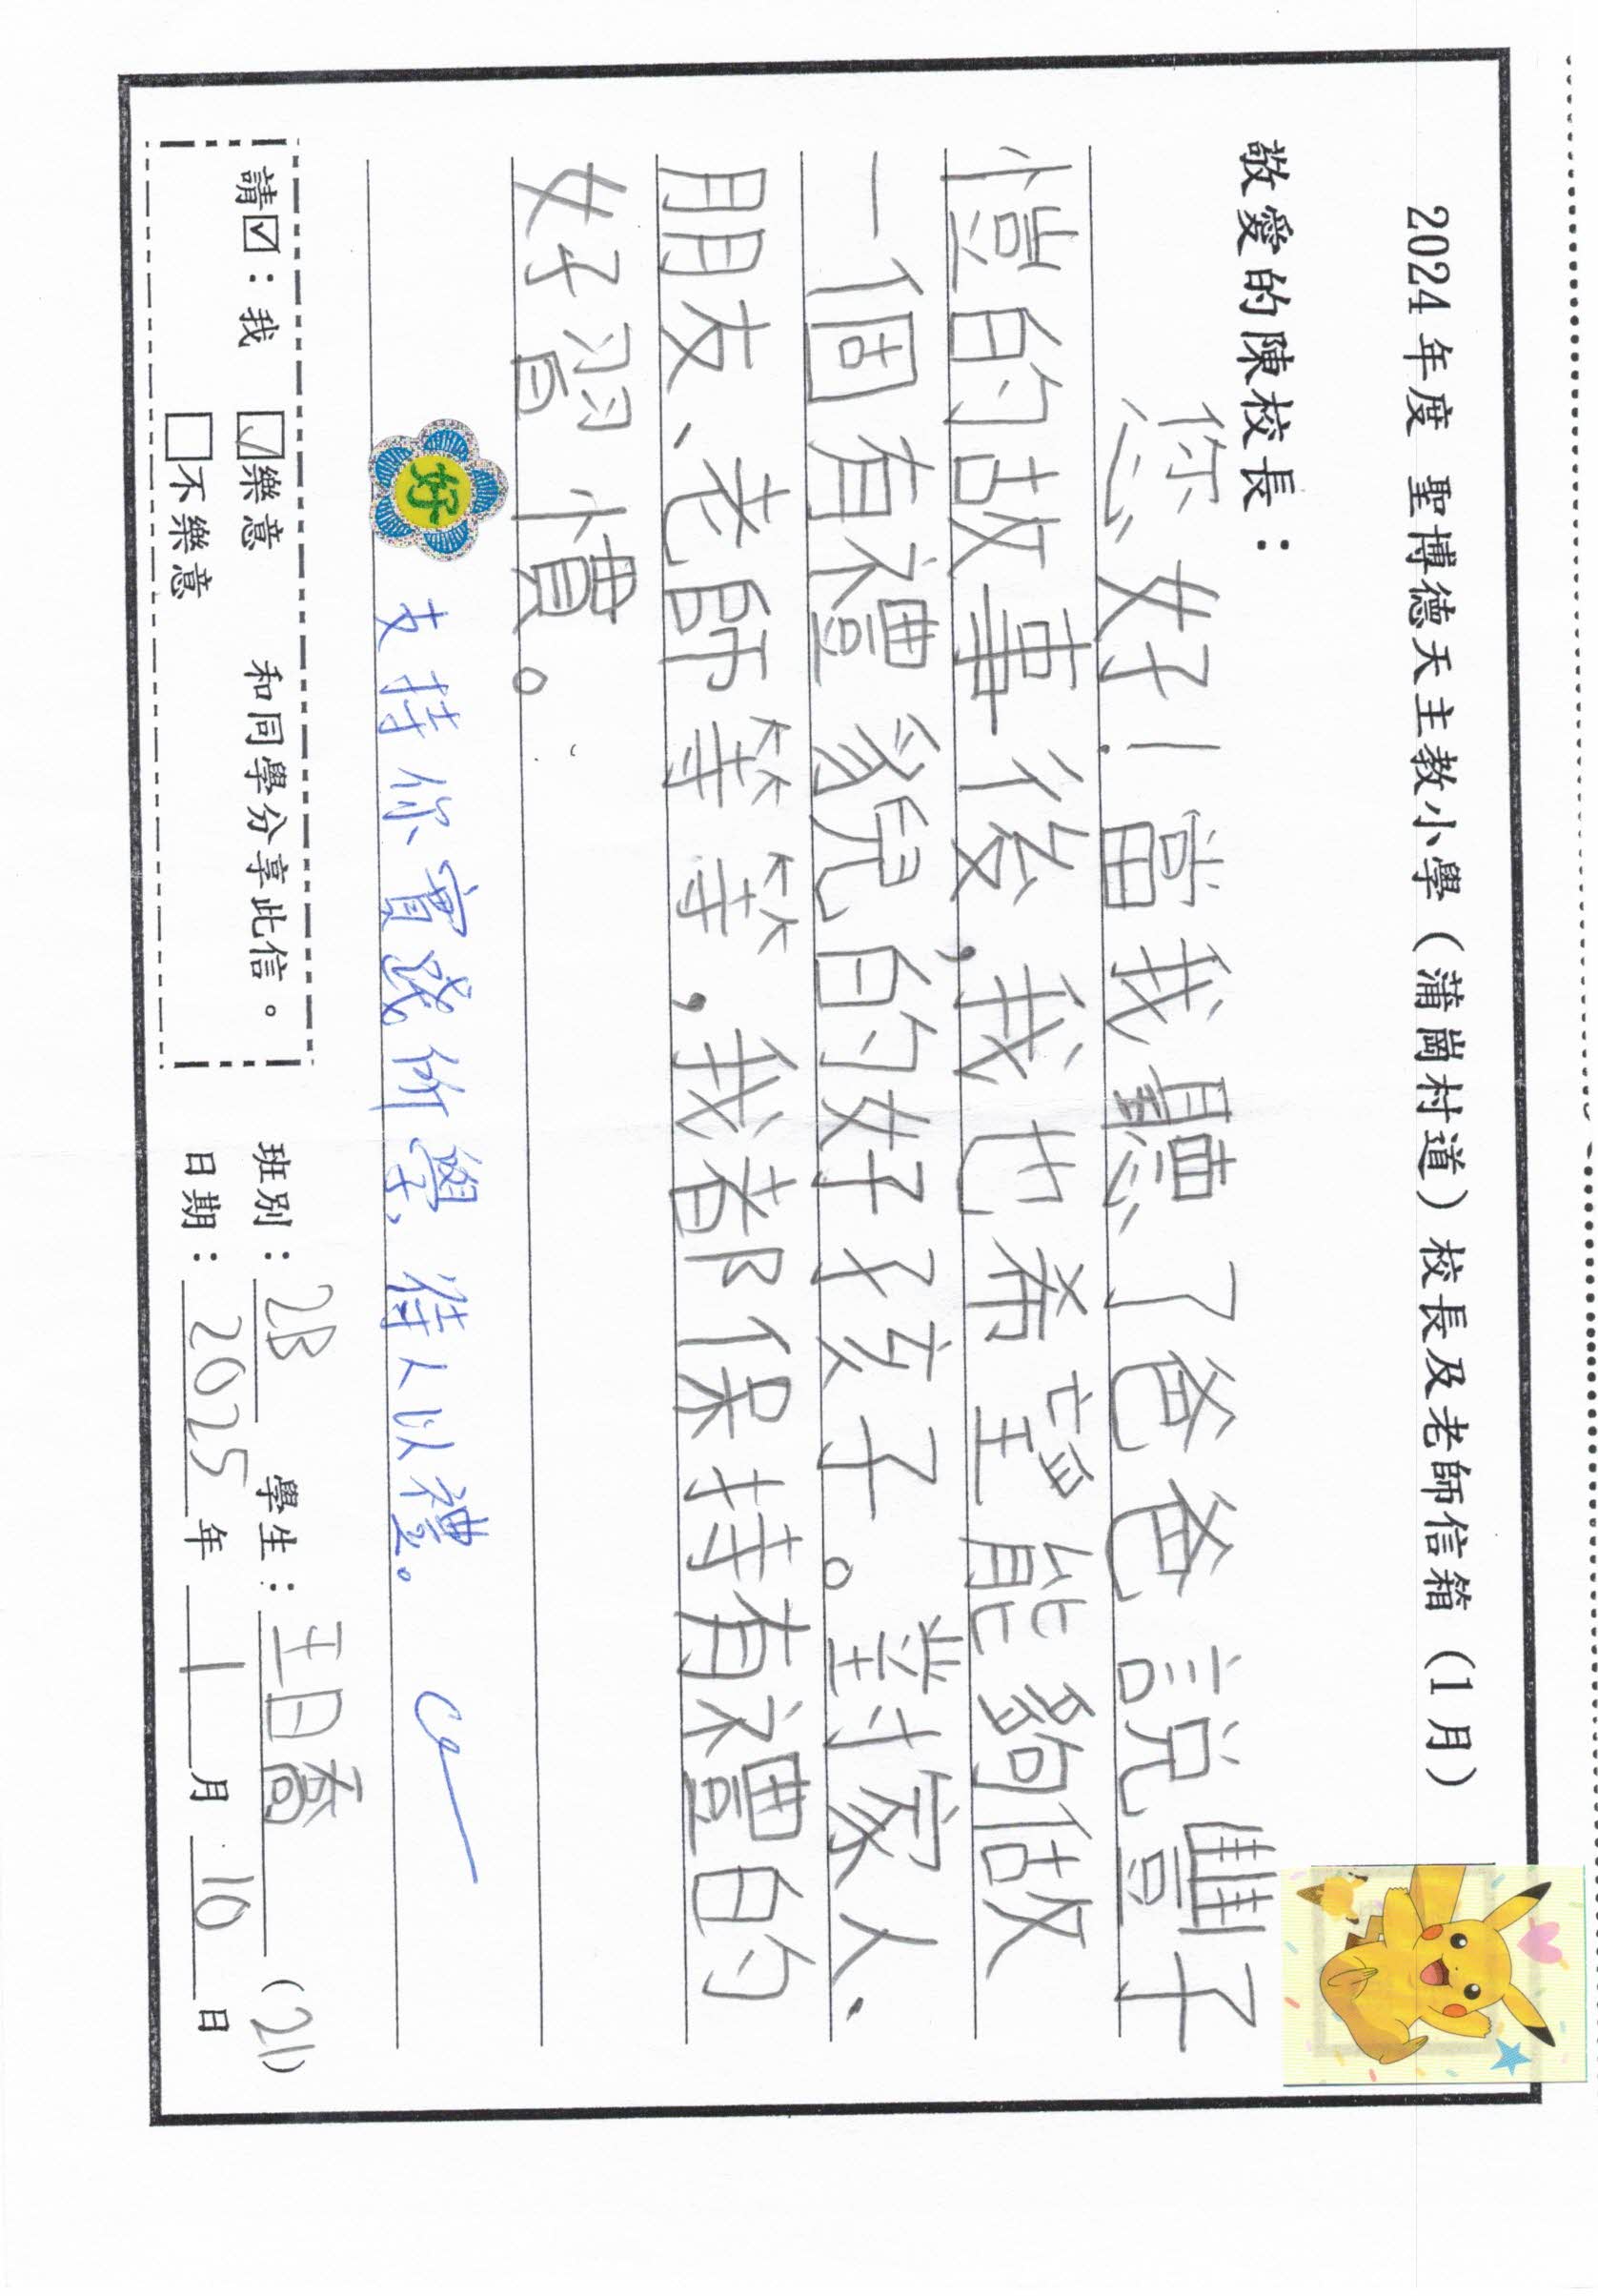 2024年度 聖博德天主教小學（蒲崗村道）校長及老師信箱（1月）
敬愛的陳校長：
您好！當我聽了爸爸説豐子
愷的故事後，我也希望能夠做
一個有禮貌兒的好孩子。對家人、
朋友、老師等等，我都保持有禮的
好習慣。
好
支持你實踐所學，待人以禮。
請☑：我 ☑樂意 和同學分享此信。
□不樂意
班別：2B 學生：王日喬 (21)
日期：2025年1月10日